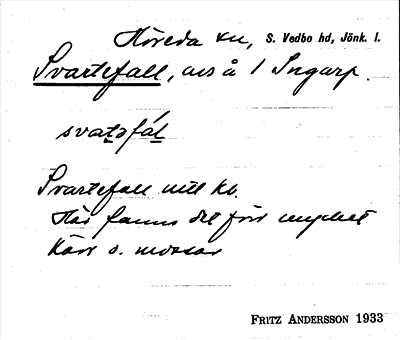 Höreda sn, S. Vedbo hd, Jönk. l.
Svartefall, avs å 1 Ingarp.
svatəfál
Svartefall
Här fanns det förr mycket
kärr o. mossar
FRITZ ANDERSSON 1933